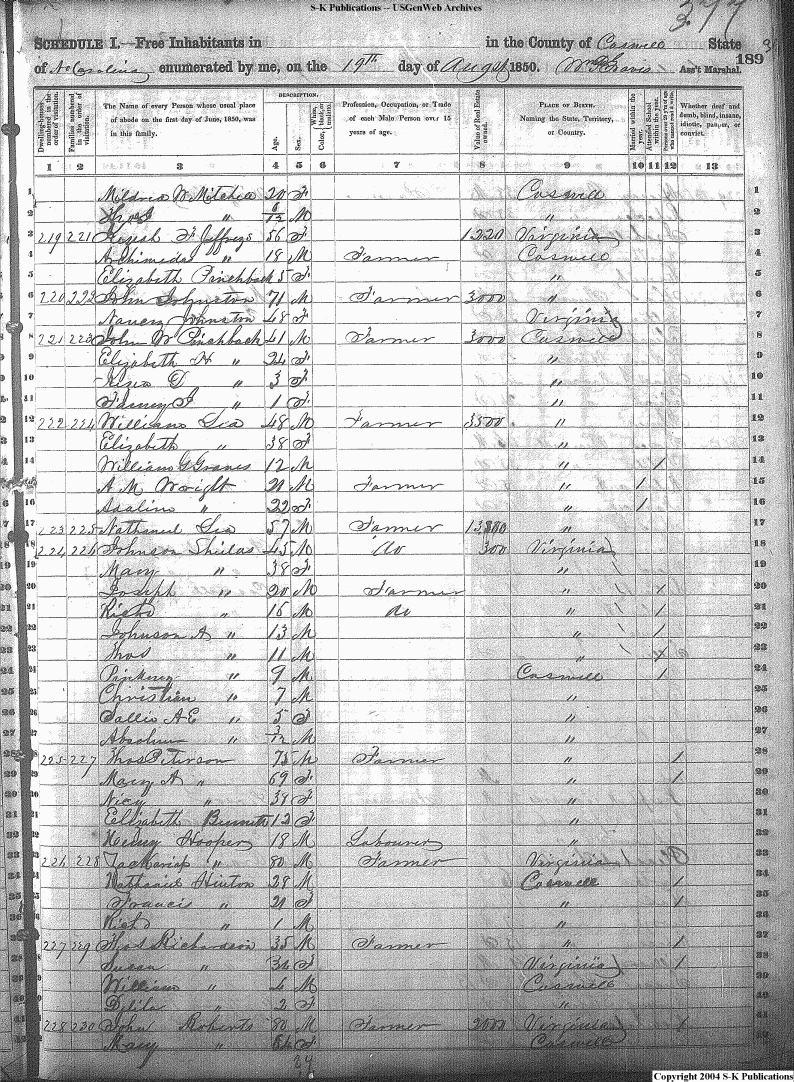 S-K Publications -- USGenWeb Archives
377
SCHEDULE I.—Free Inhabitants in in the County of Caswell State
of No Carolina enumerated by me, on the 19th day of August 1850. Ass't Marshal. 189
Dwelling-houses numbered in the order of visitation.
Families numbered in the order of visitation.
The Name of every Person whose usual place of abode on the first day of June, 1850, was in this family.
DESCRIPTION.
Age.
Sex.
Color,
Profession, Occupation, or Trade of each Male Person over 15 years of age.
Value of Real Estate owned.
PLACE OF BIRTH. Naming the State, Territory, or Country.
Married within the year.
Attended School within the year.
Whether deaf and dumb, blind, insane, idiotic, pauper, or convict.
1 2 3 4 5 6 7 8 9 10 11 12 13
1 Mildred W Mitchell 20 F Caswell 1
2 Thos " 6/12 M " 2
3 219 221 F Jeffreys 56 F 1220 Virginia 3
4 Archimedes " 18 M Farmer Caswell 4
5 Elizabeth Pinchback 5 F " 5
6 220 222 John Johnston 71 M Farmer 3000 " 6
7 Nancy Johnston 48 F Virginia 7
8 221 223 John W Pinchback 41 M Farmer 3000 Caswell 8
9 Elizabeth H " 24 F " 9
10 D " 3 F " 10
11 " 1 F " 11
12 222 224 William Lea 48 M Farmer 3500 " 12
13 Elizabeth " 38 F " 13
14 William G Graves 12 M " / 14
15 A M Wright 21 M Farmer " / 15
16 Adaline " 22 F " / 16
17 223 225 Nathaniel Lea 57 M Farmer " 17
18 224 226 Johnson Shields 45 M Do 300 Virginia 18
19 Mary " 38 F " 19
20 Joseph " 20 M Farmer " 20
21 Richd " 16 M Do " / 21
22 Johnson A " 13 M " / 22
23 Thos " 11 M " 23
24 Pinkney " 9 M Caswell / 24
25 Christian " 7 M " 25
26 Sallie A E " 5 F " 26
27 Absalom " M " 27
28 225 227 Thos Peterson 75 M Farmer " / 28
29 Mary A " 69 F " / 29
30 Nicy " 38 F " 30
31 Elizabeth Bennett 12 F " 31
32 Henry Hooper 18 M Labourer " 32
33 226 228 Zachariah " 80 M Farmer Virginia 33
34 Nathaniel Hinton 28 M Caswell / 34
35 Francis " 21 F " / 35
36 Richd " 1 M " 36
37 227 229 Thos Richardson 35 M Farmer " / 37
38 Susan " 32 F Virginia / 38
39 William " 4 M Caswell 39
40 Delila " 2 F " 40
41 228 230 John Roberts 80 M Farmer 2000 Virginia / 41
42 Mary " 64 F Caswell 42
Copyright 2004 S-K Publications